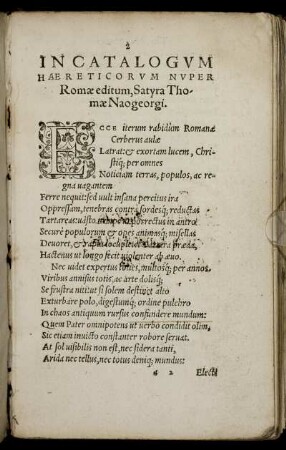 2
IN CATALOGVM
HAERETICORVM NVPER
Romæ editum, Satyra Tho-
mæ Naogeorgi.
ECCE iterum rabidum Romanæ
Cerberus aulæ
Latrat: & exortam lucem, Chri-
stiq́; per omnes
Noticiam terras, populos, ac re-
gna uagantem
Ferre nequit: sed uult insana percitus ira
Oppressam, tenebras contrà sordesq́; reductas
Tartareas: isto ut porrectus in antro
Securè populorum & oges animasq́; misellas
Deuoret, & præda,
Hactenus ut longo fecit uiolenter ab æuo.
Nec uidet expertus multosq́; per annos.
Viribus annisus totis, ac arte dolisq́;
Se frustra niti ut si solem destinet alto
Exturbare polo, digestumq́; ordine pulchro
In chaos antiquum rursus confundere mundum:
Quem Pater omnipotens ut uerbo condidit olim,
Sic etiam inuicto constanter robore seruat.
At sol uisibilis non est, nec sidera tanti,
Arida nec tellus, nec totus deniq́; mundus:
a 2 Electi